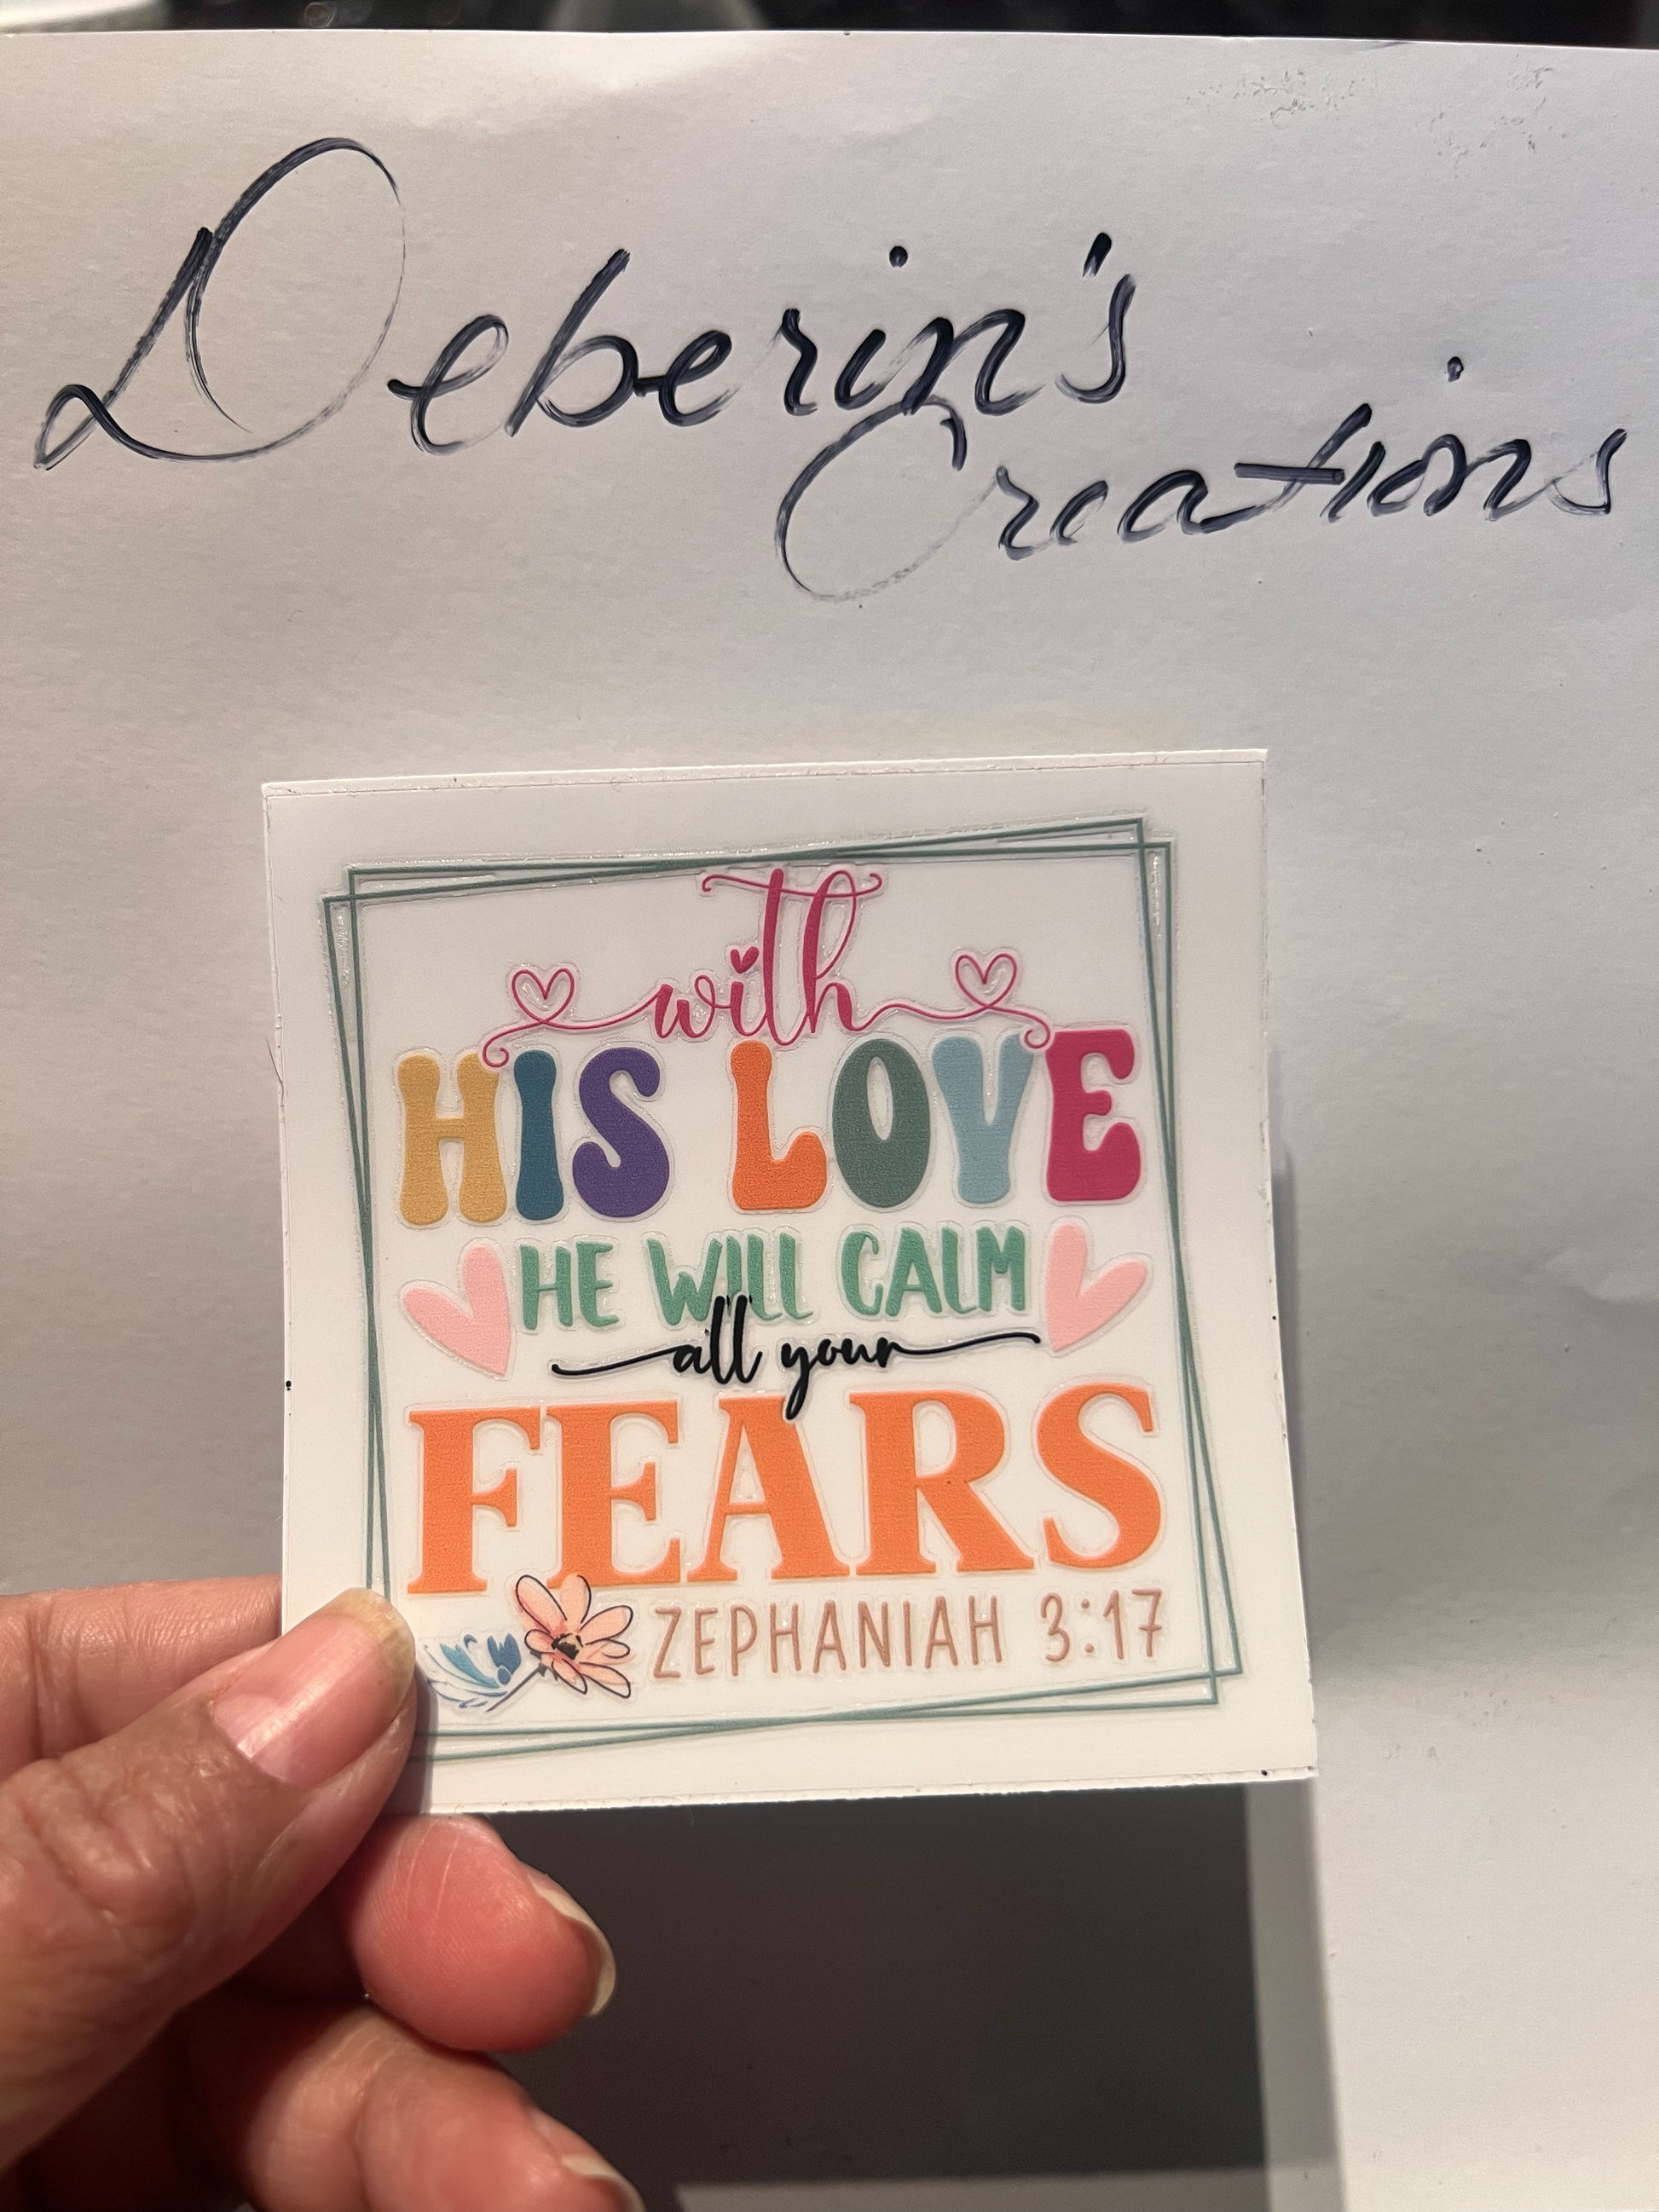 Deberin's
Creations
with
HIS LOVE
HE WILL CALM
all your
FEARS
ZEPHANIAH 3:17